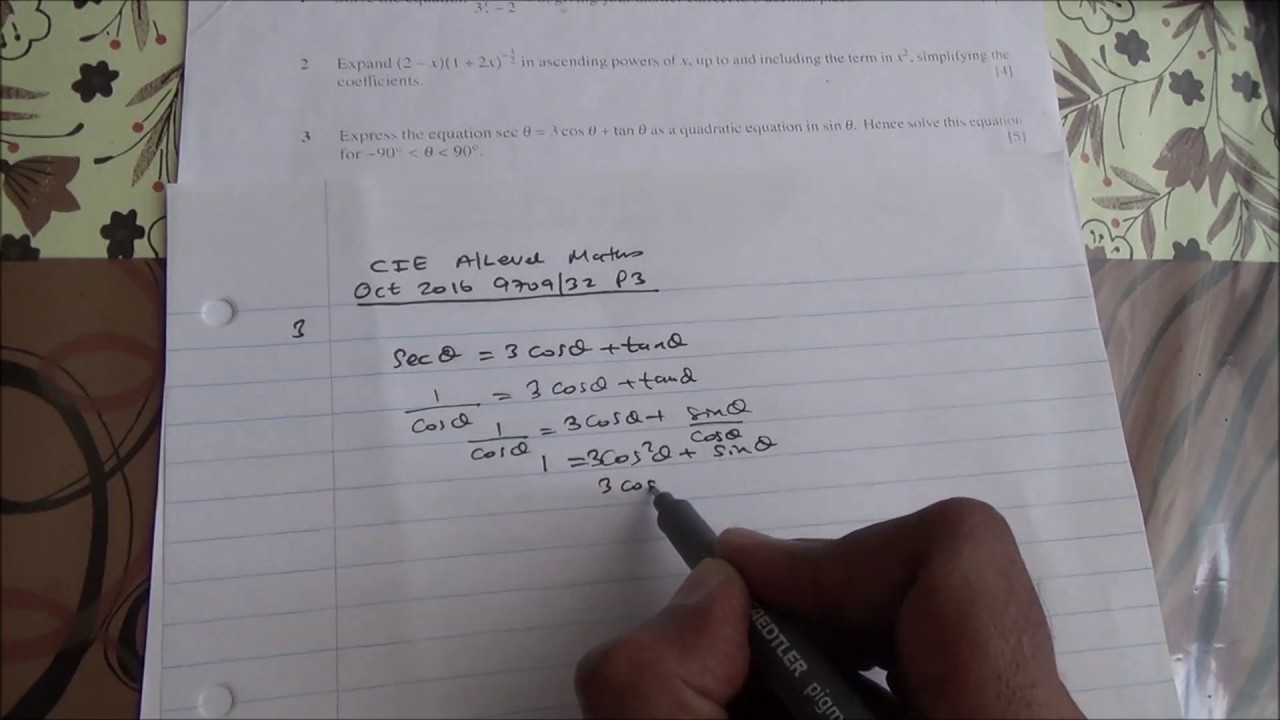 3ˣ − 2
2 Expand (2 − x)(1 + 2x)^{-\frac{1}{2}} in ascending powers of x, up to and including the term in x², simplifying the
coefficients. [4]
3 Express the equation sec θ = 3 cos θ + tan θ as a quadratic equation in sin θ. Hence solve this equation
for −90° < θ < 90°. [5]
CIE A/Level Maths
Oct 2016 9709/32 P3
3
Sec θ = 3 cosθ + tanθ
1/cosθ = 3 cosθ + tanθ
1/cosθ = 3cosθ + sinθ/cosθ
1 = 3cos²θ + sinθ
3 cos
AEDTLER pigm